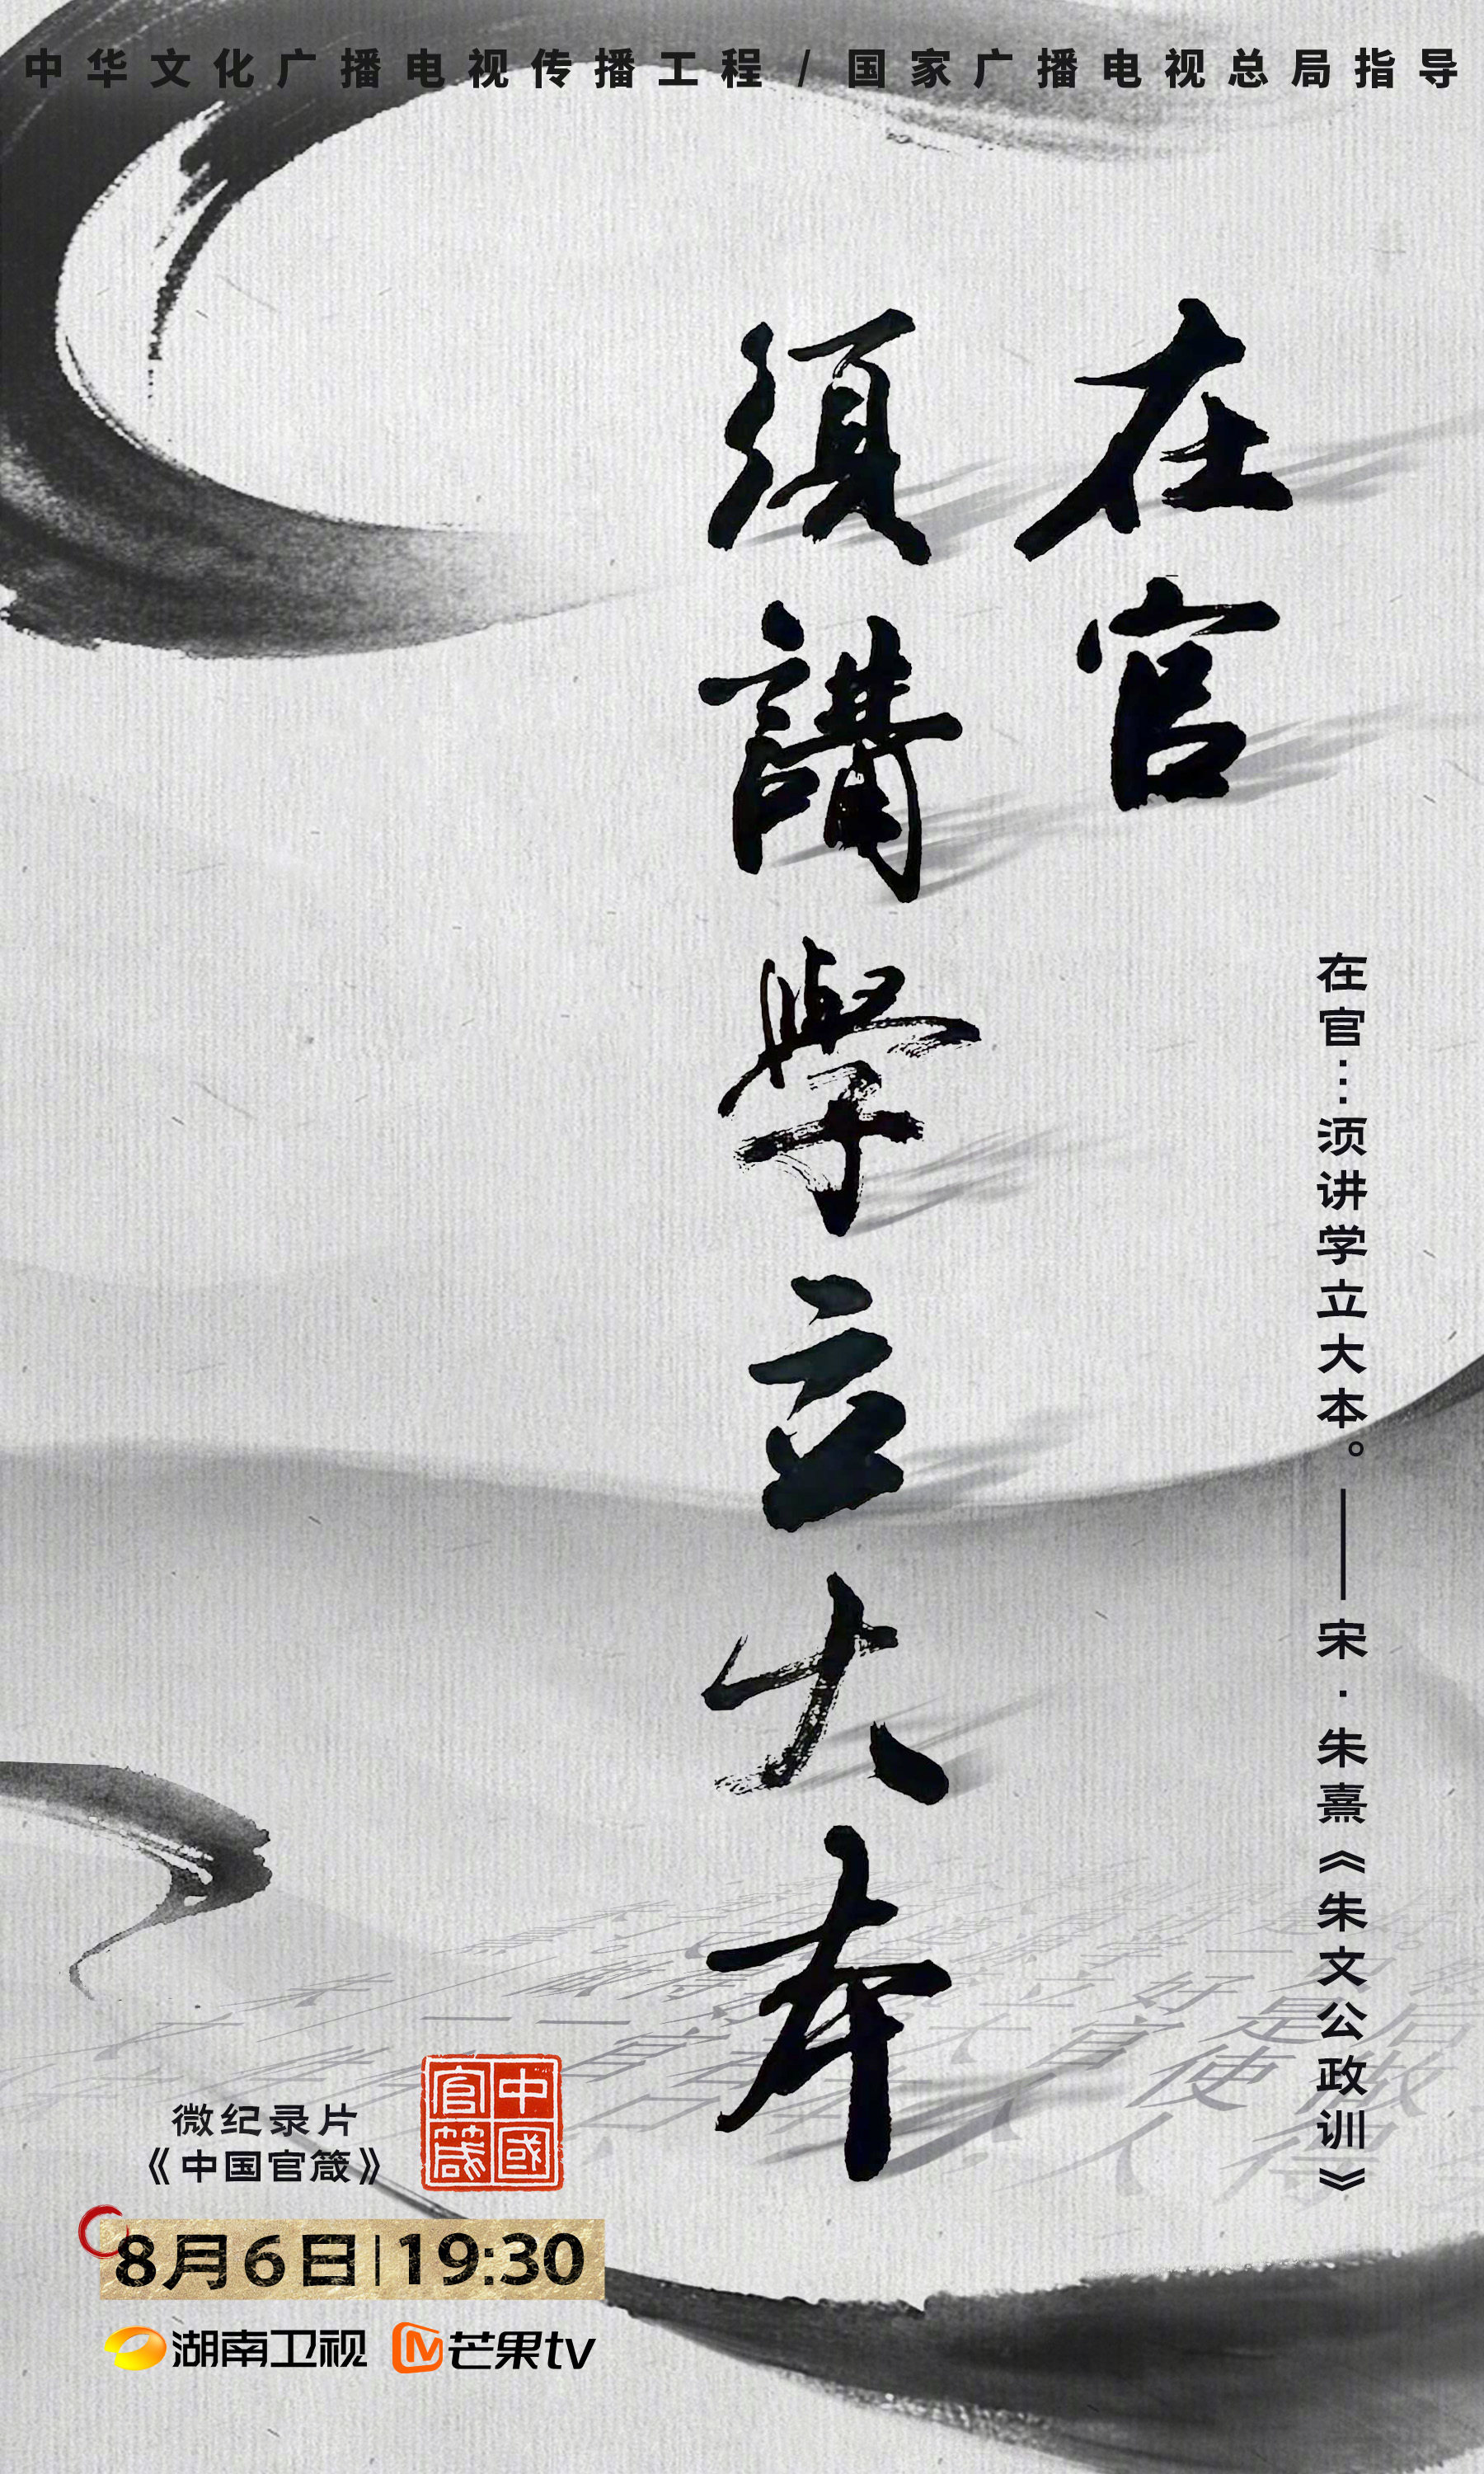 中华文化广播电视传播工程/国家广播电视总局指导
在官
須講學立大本
在官…须讲学立大本。——宋·朱熹《朱文公政训》
微纪录片
《中国官箴》
中國官箴
8月6日|19:30
湖南卫视 芒果tv